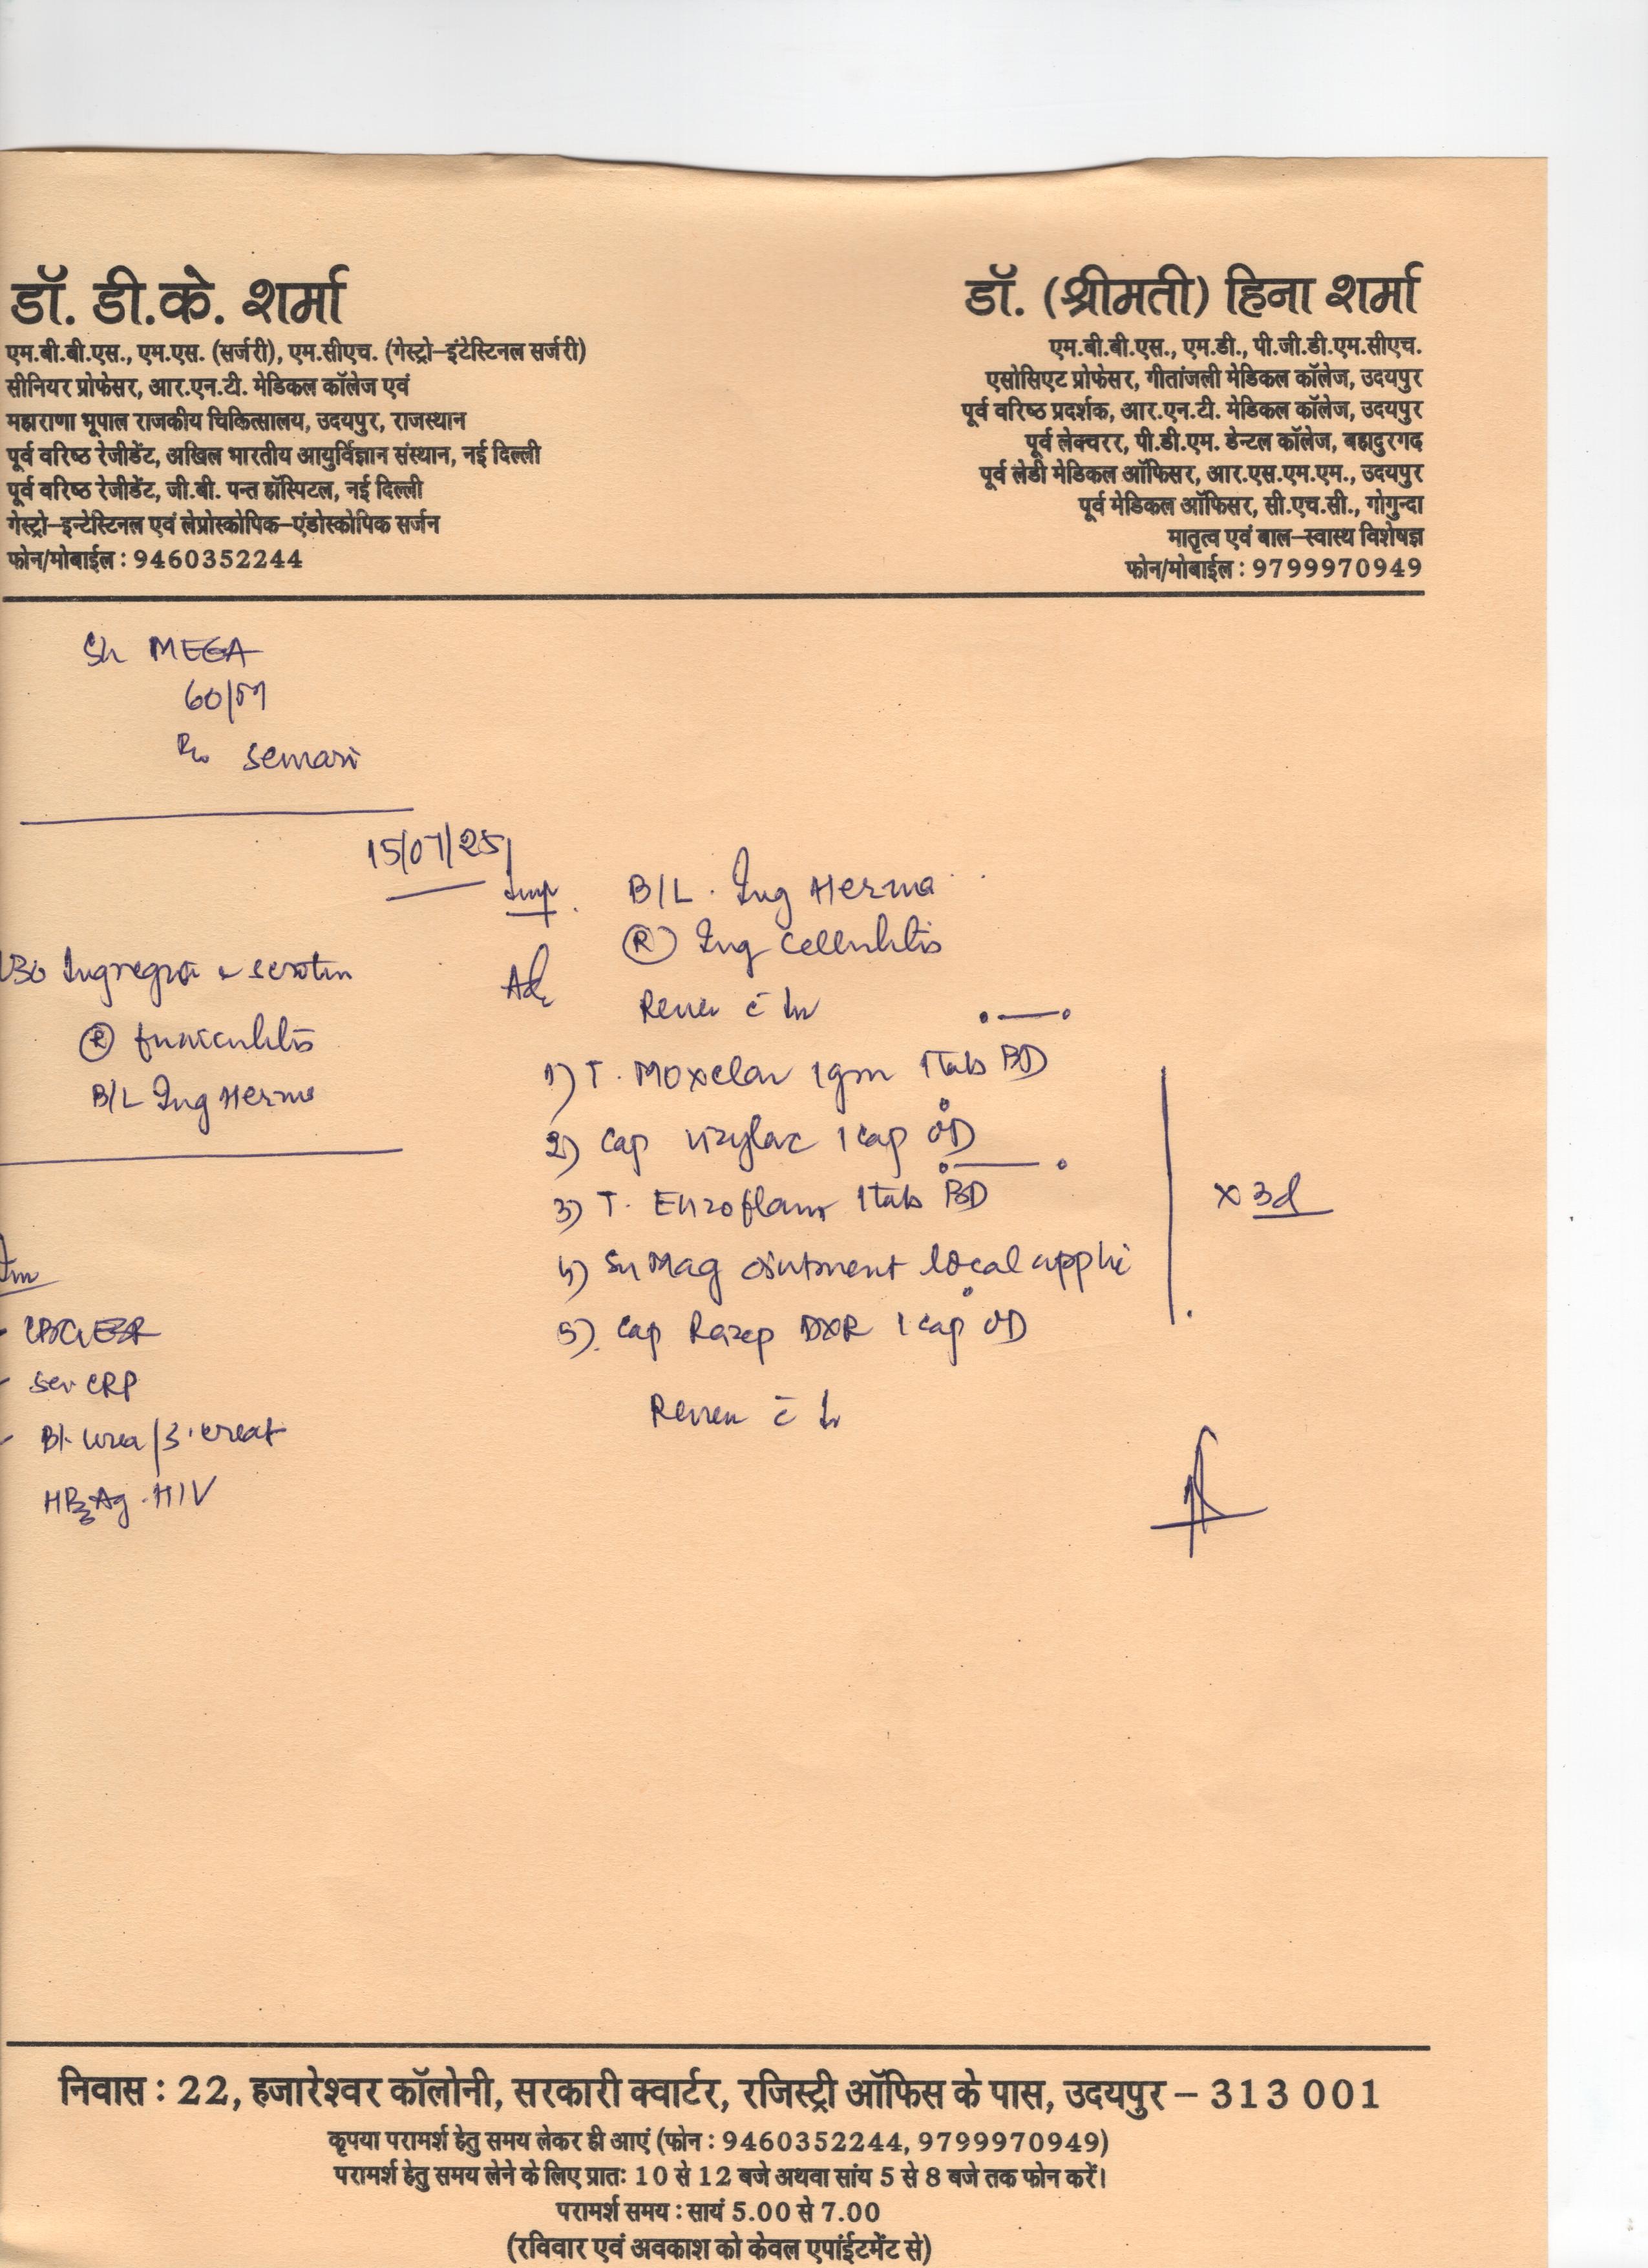 डॉ. डी.के. शर्मा
एम.बी.बी.एस., एम.एस. (सर्जरी), एम.सीएच. (गेस्ट्रो-इंटेस्टिनल सर्जरी)
सीनियर प्रोफेसर, आर.एन.टी. मेडिकल कॉलेज एवं
महाराणा भूपाल राजकीय चिकित्सालय, उदयपुर, राजस्थान
पूर्व वरिष्ठ रेजीडेंट, अखिल भारतीय आयुर्विज्ञान संस्थान, नई दिल्ली
पूर्व वरिष्ठ रेजीडेंट, जी.बी. पन्त हॉस्पिटल, नई दिल्ली
गेस्ट्रो-इन्टेस्टिनल एवं लेप्रोस्कोपिक-एंडोस्कोपिक सर्जन
फोन/मोबाईल : 9460352244
डॉ. (श्रीमती) हिना शर्मा
एम.बी.बी.एस., एम.डी., पी.जी.डी.एम.सीएच.
एसोसिएट प्रोफेसर, गीतांजली मेडिकल कॉलेज, उदयपुर
पूर्व वरिष्ठ प्रदर्शक, आर.एन.टी. मेडिकल कॉलेज, उदयपुर
पूर्व लेक्चरर, पी.डी.एम. डेन्टल कॉलेज, बहादुरगढ
पूर्व लेडी मेडिकल ऑफिसर, आर.एस.एम.एम., उदयपुर
पूर्व मेडिकल ऑफिसर, सी.एच.सी., गोगुन्दा
मातृत्व एवं बाल-स्वास्थ विशेषज्ञ
फोन/मोबाईल : 9799970949
Sh MEGA
60/M
R/o Semari
15/07/25
USG Ing region & scrotum
(R) funiculitis
B/L Ing Hernia
CBC/ESR
Ser CRP
Bl. urea/S. creat
HBsAg. HIV
Imp. B/L. Ing Hernia
(R) Ing cellulitis
Adv
1) T. Moxclav 1gm 1tab BD
2) Cap Vizylac 1 cap OD
3) T. Enzoflam 1tab BD
4) SuMag ointment local appli
5) Cap Razep DXR 1 cap OD
x 3d
निवास : 22, हजारेश्वर कॉलोनी, सरकारी क्वार्टर, रजिस्ट्री ऑफिस के पास, उदयपुर - 313 001
कृपया परामर्श हेतु समय लेकर ही आएं (फोन : 9460352244, 9799970949)
परामर्श हेतु समय लेने के लिए प्रातः 10 से 12 बजे अथवा सांय 5 से 8 बजे तक फोन करें।
परामर्श समय : सायं 5.00 से 7.00
(रविवार एवं अवकाश को केवल एपांईटमेंट से)